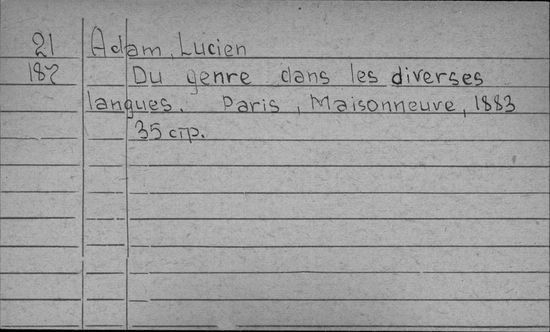 21 Adam, Lucien
187 Du genre dans les diverses
langues. Paris, Maisonneuve, 1883
35 стр.